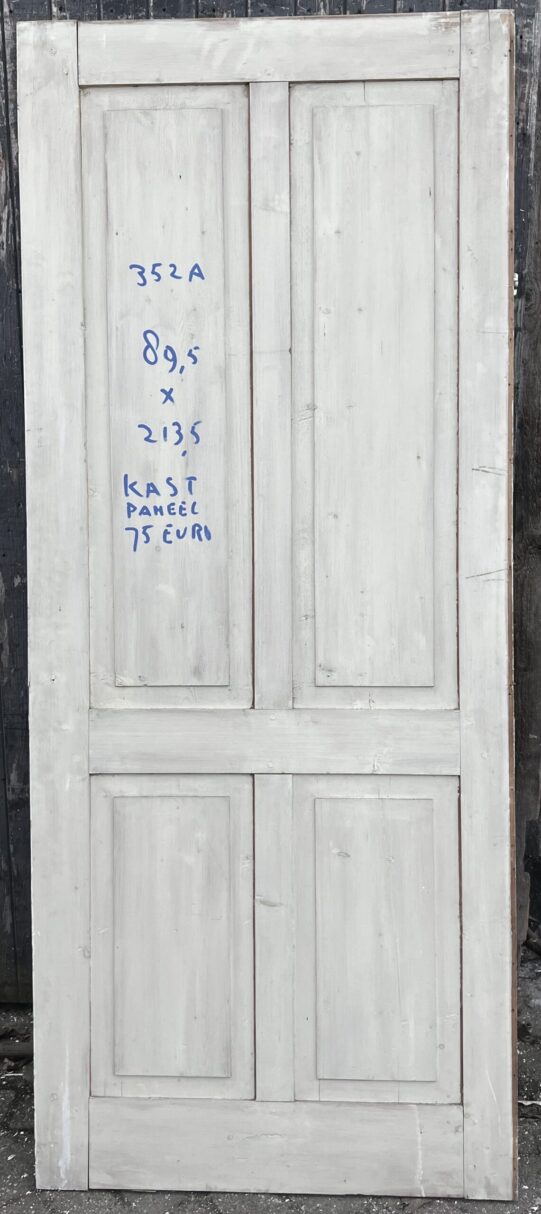 352A
89,5
x
213,5
KAST
PANEEL
75 EURO